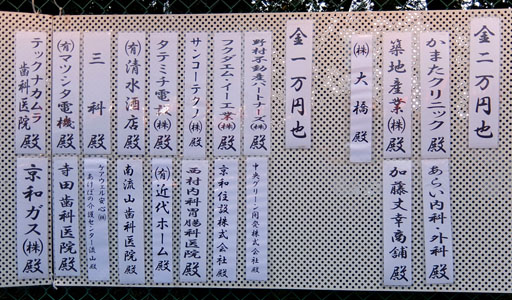 金二万円也
かまたクリニック殿
あらい内科・外科殿
築地産業㈱殿
加藤丈幸商舗殿
㈱大橋殿
金一万円也
野村不動産パートナーズ㈱殿
中央グリーン開発株式会社殿
フクダエム・イー工業㈱殿
京和住設株式会社殿
サンコーテクノ㈱殿
西村内科胃腸科医院殿
タテミナ電設㈱殿
㈲近代ホーム殿
㈲清水酒店殿
南流山歯科医院殿
三科殿
ケアウェル安心㈱
あけぼの介護センター流山殿
㈲マツシタ電機殿
寺田歯科医院殿
テックナカムラ
歯科医院殿
京和ガス㈱殿